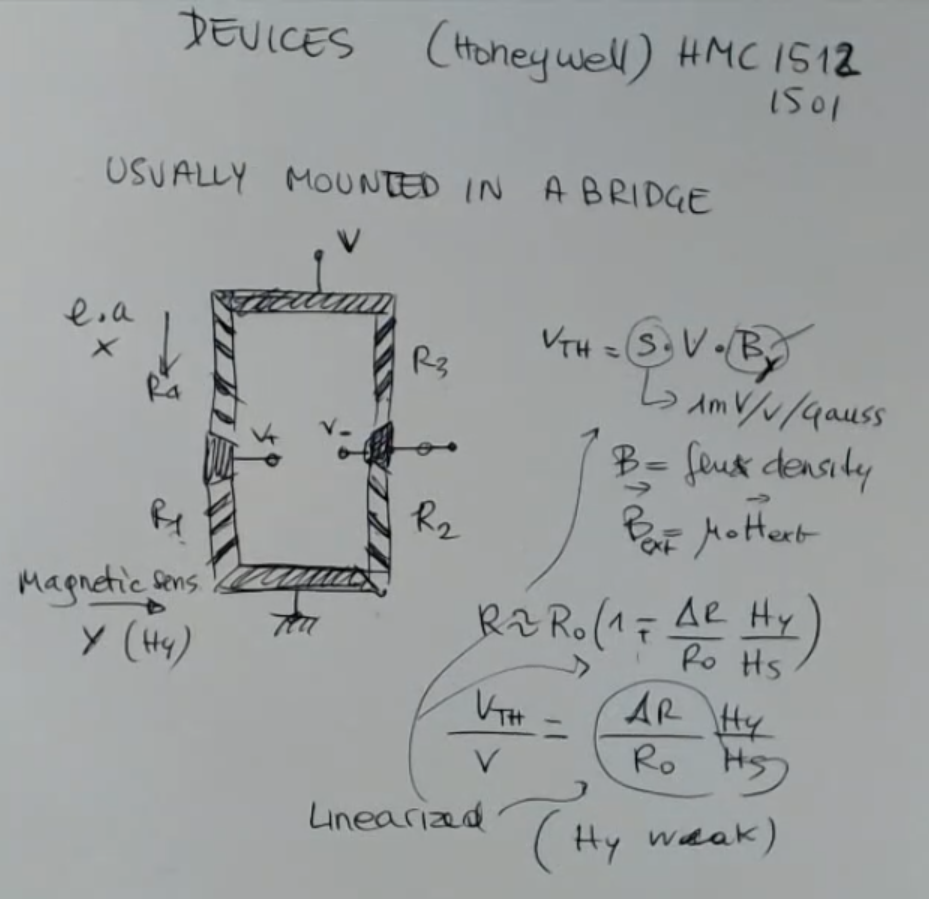 DEVICES (Honeywell) HMC 1512
1501
USUALLY MOUNTED IN A BRIDGE
V
e.a
X
R4
R3
V+
V-
R1
R2
Magnetic sens.
Y (Hy)
V_TH = S · V · B_y
1mV/V/Gauss
B = flux density
B⃗_ext = μ₀ H⃗_ext
R ≈ R₀ (1 ∓ ΔR/R₀ Hy/Hs)
V_TH/V = ΔR/R₀ Hy/Hs
Linearized
(Hy weak)